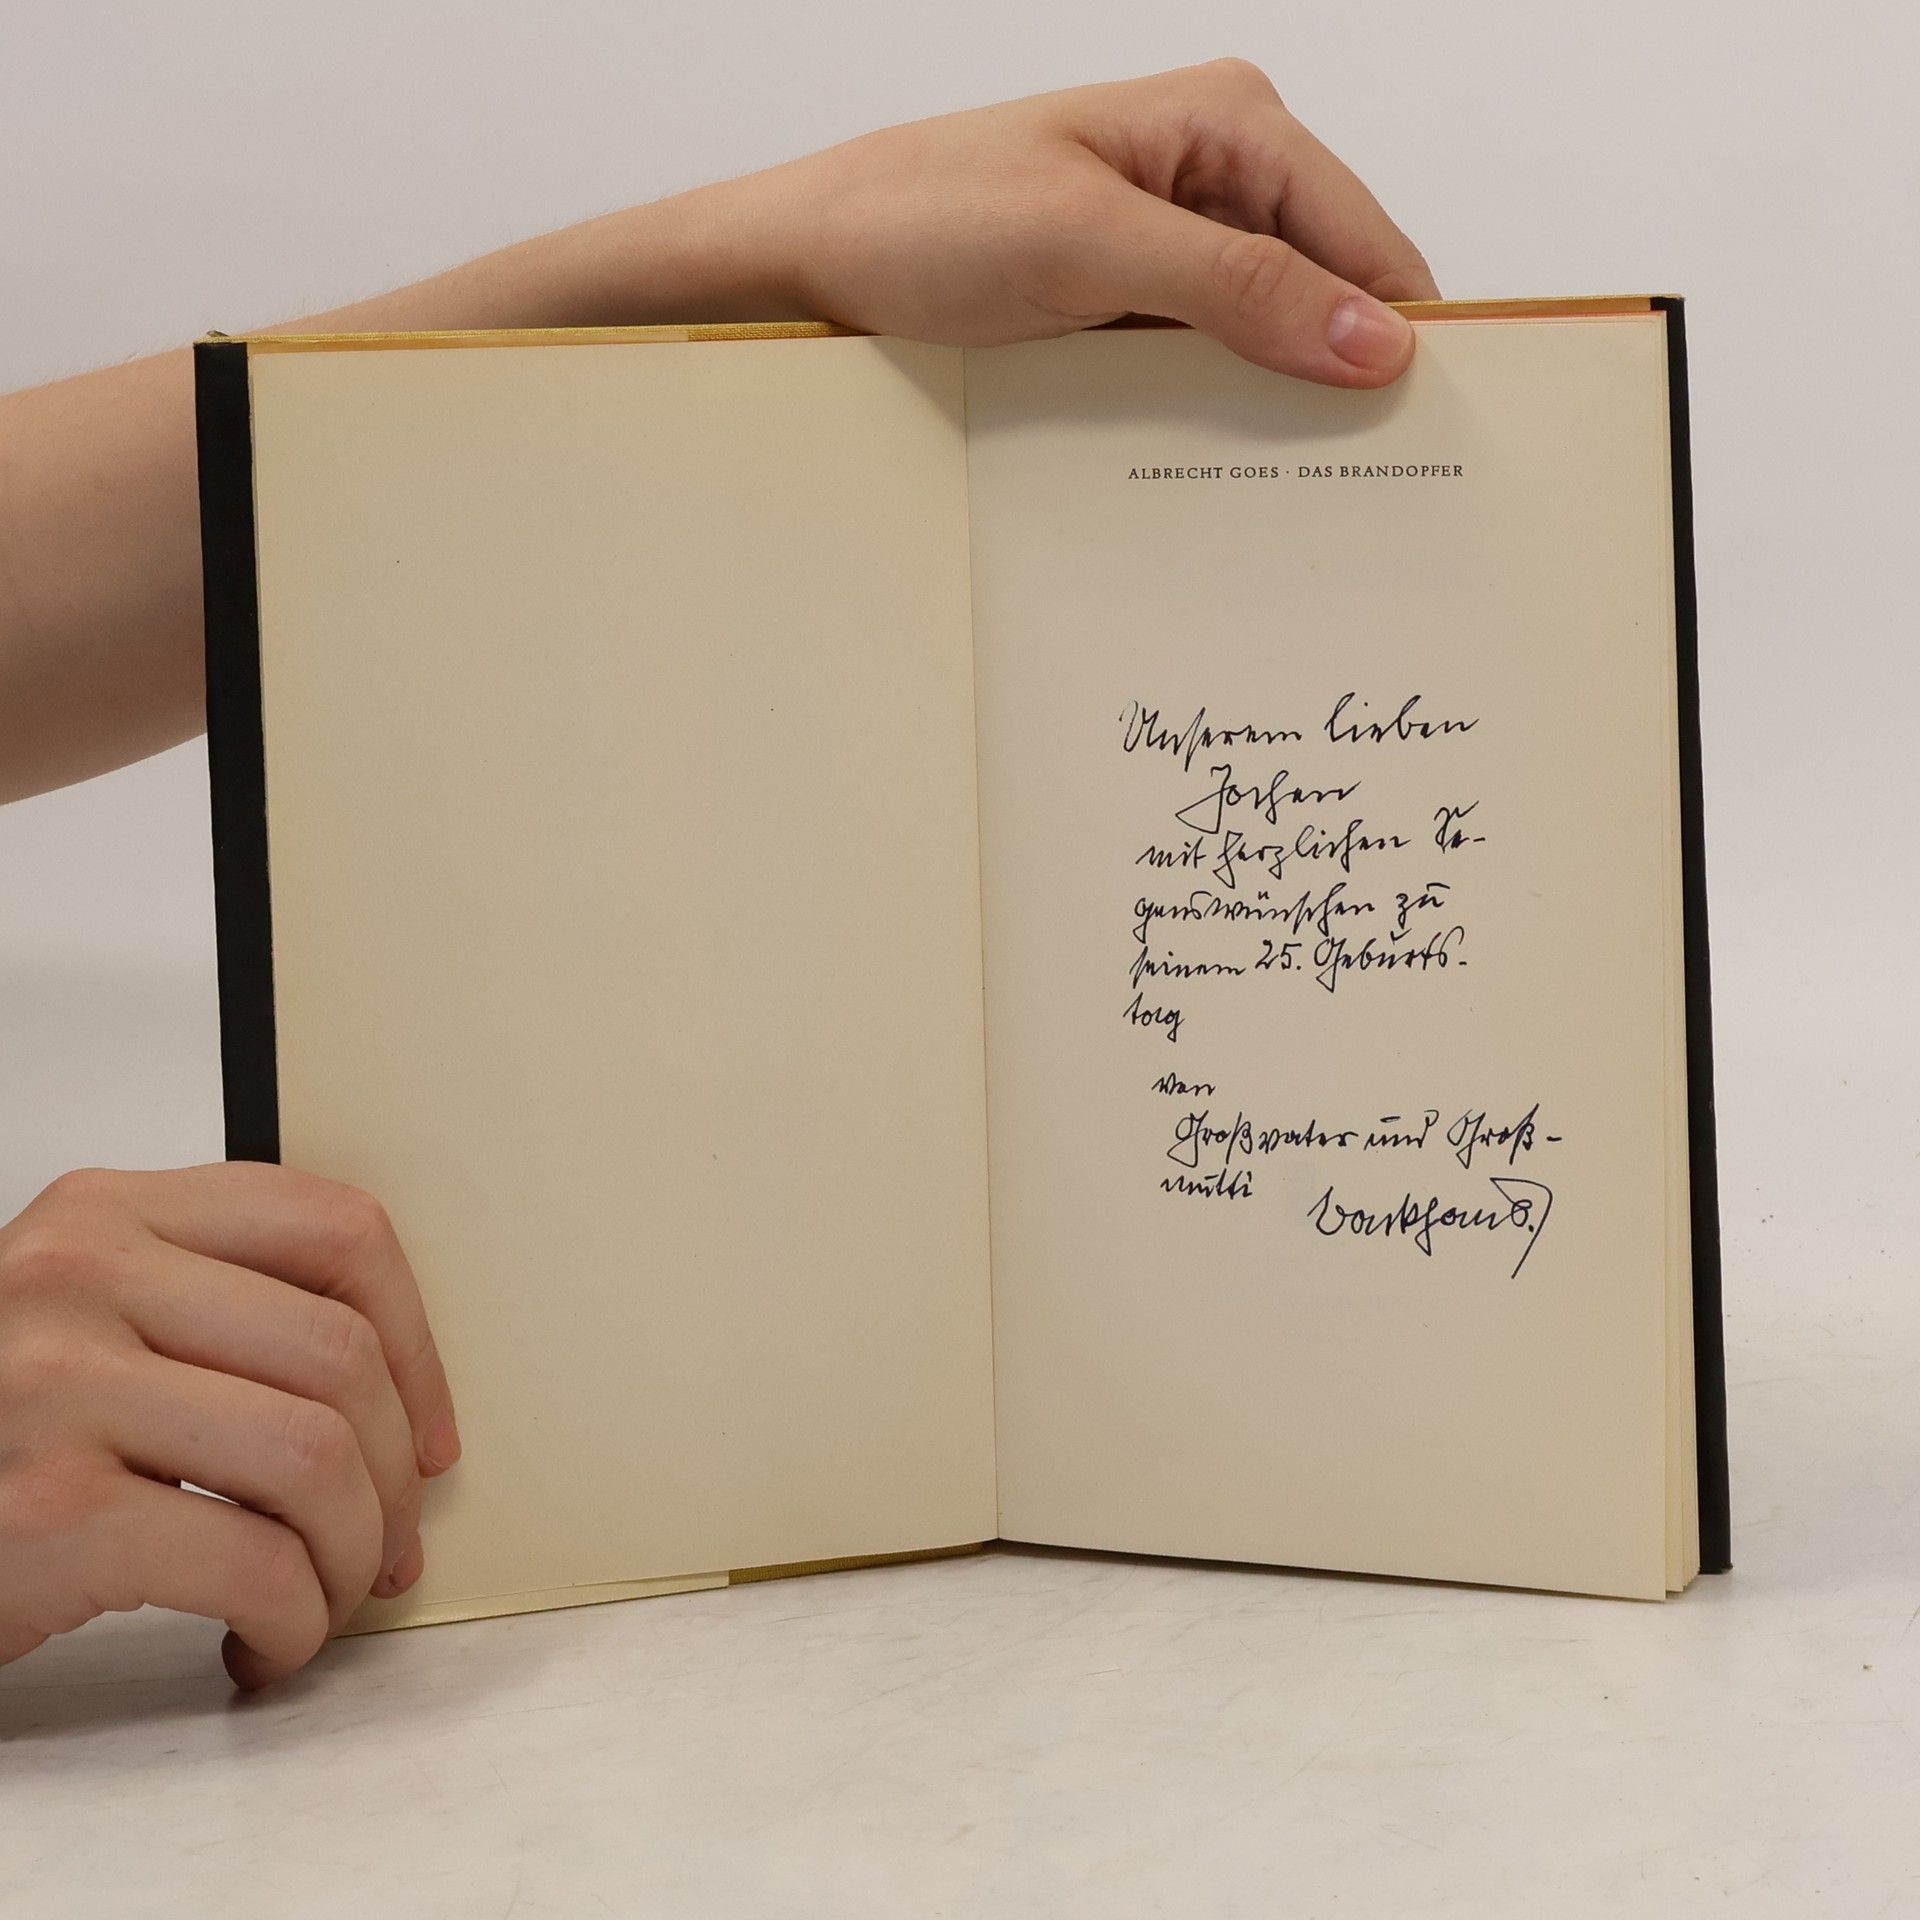 ALBRECHT GOES · DAS BRANDOPFER
Unserem lieben
Jochen
mit herzlichen Se-
genswünschen zu
seinem 25. Geburts-
tag
von
Großvater und Groß-
mutti
Backhaus.